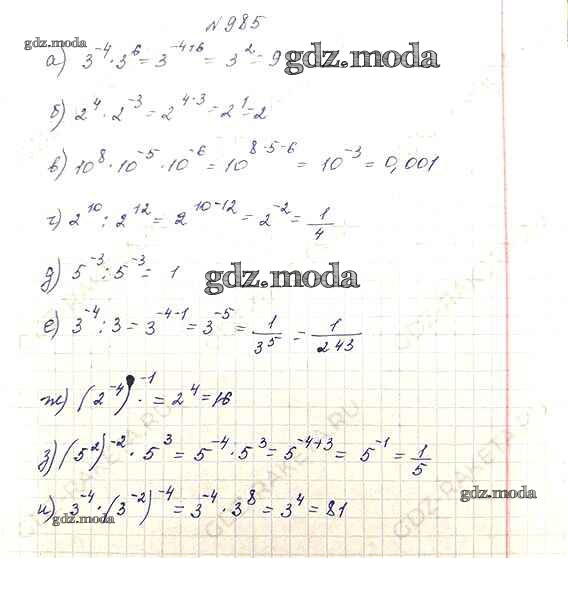 №985
gdz.moda
а) 3⁻⁴·3⁶=3⁻⁴⁺⁶=3²=9 gdz.moda
б) 2⁴·2⁻³=2⁴⁻³=2¹=2
в) 10⁸·10⁻⁵·10⁻⁶=10⁸⁻⁵⁻⁶=10⁻³=0,001
г) 2¹⁰:2¹²=2¹⁰⁻¹²=2⁻²=1/4
д) 5⁻³:5⁻³=1 gdz.moda
е) 3⁻⁴:3=3⁻⁴⁻¹=3⁻⁵=1/3⁵=1/243
ж) (2⁻⁴)⁻¹=2⁴=16
з) (5²)⁻²·5³=5⁻⁴·5³=5⁻⁴⁺³=5⁻¹=1/5
gdz.moda
и) 3⁻⁴·(3⁻²)⁻⁴=3⁻⁴·3⁸=3⁴=81
gdz.moda
GDZ-RAKETA.RU
GDZ-RAKETA.RU